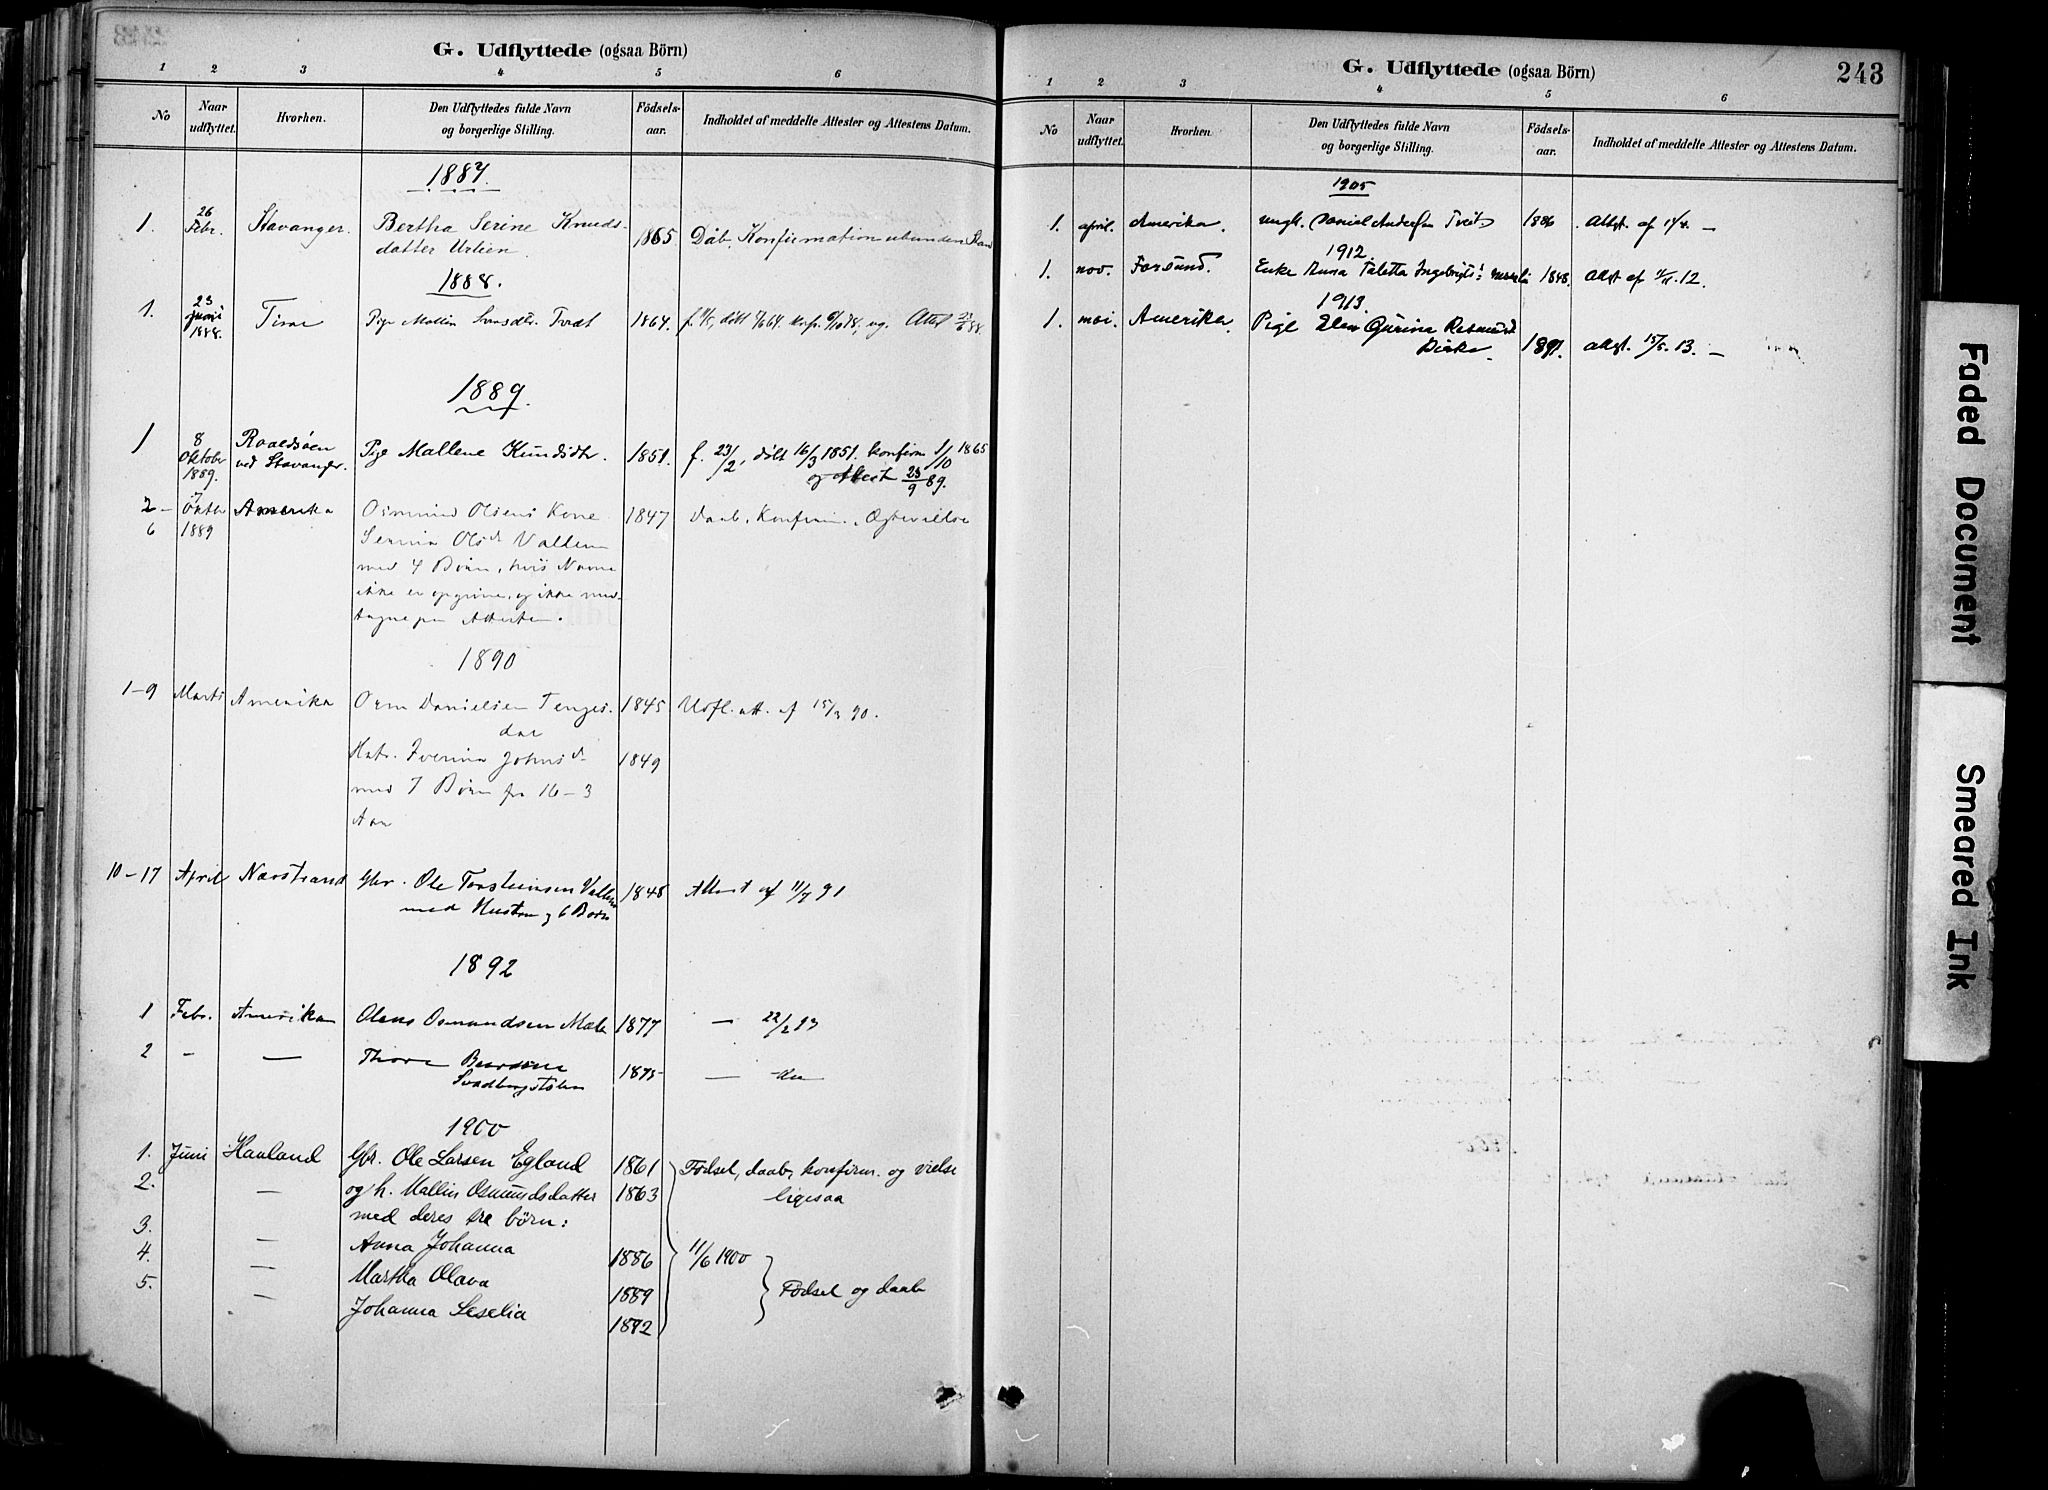 G. Udflyttede (ogsaa Börn)
1 2 3 4 5 6
No
Naar udflyttet.
Hvorhen.
Den Udflyttedes fulde Navn og borgerlige Stilling.
Födsels-aar.
Indholdet af meddelte Attester og Attestens Datum.
1887.
1. 26 Febr. Stavanger. Bertha Serine Knuds- 1865 Dåb, Konfirmation ubunden Stand
datter Urlien.
1888.
1. 23 Juni 1888. Time Pige Mallin 1864.
1889.
1 8 Oktober 1889. Roaldsöen ved Stavanger. Pige Mallene Knudsdtr. 1851. f. 23/2, döbt 16/3 1851. konfirm 1/10 1865
og Attest 23/9 89.
2 – 6 7 Oktbr 1889 Amerika Osmund Olsens Kone 1847 Daab, Konfirm.,
Serina Olsd Vallen
med 4 Börn, hvis Navne
ikke er opgivne, og ikke med-
tagne paa Attesten.
1890
1–9 Marts Amerika Orm Danielsen Tenges- 1845 Udfl. att. af 15/3 90.
dal
Hstr. Iverina Johnsd. 1849
med 7 Börn fra 16–3
Aar
10–17 April Nærstrand Gbr. Ole Torsteinsen Vallen 1848 Attest af 11/7 91
med Hustru og 6 Börn
1892
1 Febr. Amerika Olens Osmundsen 1877 — 22/2 93
2 – — 1875 —
1900
1. Juni Haaland Gbr. Ole Larsen Egland 1861 Födsel, daab, konfirm. og vielse
2. — og h. Mallin Osmundsdatter 1863 ligesaa
med deres tre börn:
3. — Anna Johanna 1886 11/6 1900
4. — Martha Olava 1889 Födsel og daab
5. — Johanna Seselia 1892
G. Udflyttede (ogsaa Börn) 243
1 2 3 4 5 6
No
Naar udflyttet.
Hvorhen.
Den Udflyttedes fulde Navn og borgerlige Stilling.
Födsels-aar.
Indholdet af meddelte Attester og Attestens Datum.
1905
1. april. Amerika. ungk. Daniel Andersen Tveit 1886 Attst. af 1/4. —
1912.
1. nov. Enke Anna Taletta Ingebrigts: 1848. Attst af 12.
1913.
1. mai. Amerika. Pige Elen Gurina Rasmusd. 1891. attst. 15/5. 13. —
Faded Document
Smeared Ink